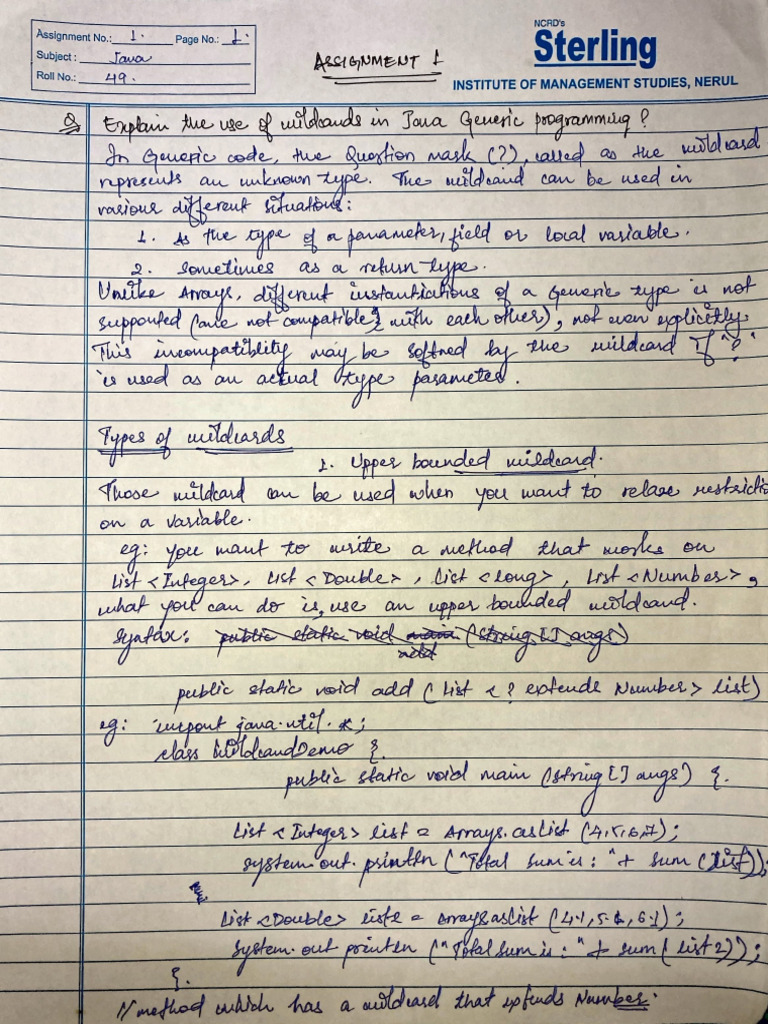 Assignment No.: 1. Page No.: 1.
Subject: Java
Roll No.: 49.
NCRD's
Sterling
INSTITUTE OF MANAGEMENT STUDIES, NERUL
ASSIGNMENT 1
Q Explain the use of wildcards in Java Generic programming?
In Generic code, the Question mask (?), called as the wildcard
represents an unknown type. The wildcard can be used in
various different situations:
1. As the type of a parameter, field or local variable.
2. Sometimes as a return type.
Unlike Arrays, different instantiations of a Generic type is not
supported (are not compatible with each other), not even explicitly.
This incompatiblity may be softned by the wildcard If "?"
is used as an actual type parameter.
Types of wildcards
1. Upper bounded wildcard.
Those wildcard can be used when you want to relaxe restrictio
on a variable.
eg: you want to write a method that works on
List <Integer>, List <Double>, List <long>, List <Number>,
what you can do is, use an upper bounded wildcard.
Syntax: public static void main (string [] args)
add
public static void add (List <? extends Number> list)
eg: import java.util.*;
class WildcardDemo {.
public static void main (string [] args) {.
List <Integer> list = Arrays.asList (4,5,6,7);
system.out.println ("Total sum is: " + sum (list));
List <Double> list2 = Arrays.asList (4.1, 5.1, 6.1);
system.out println ("Total sum is: " + sum (list2));
}.
// method which has a wildcard that extends Number.